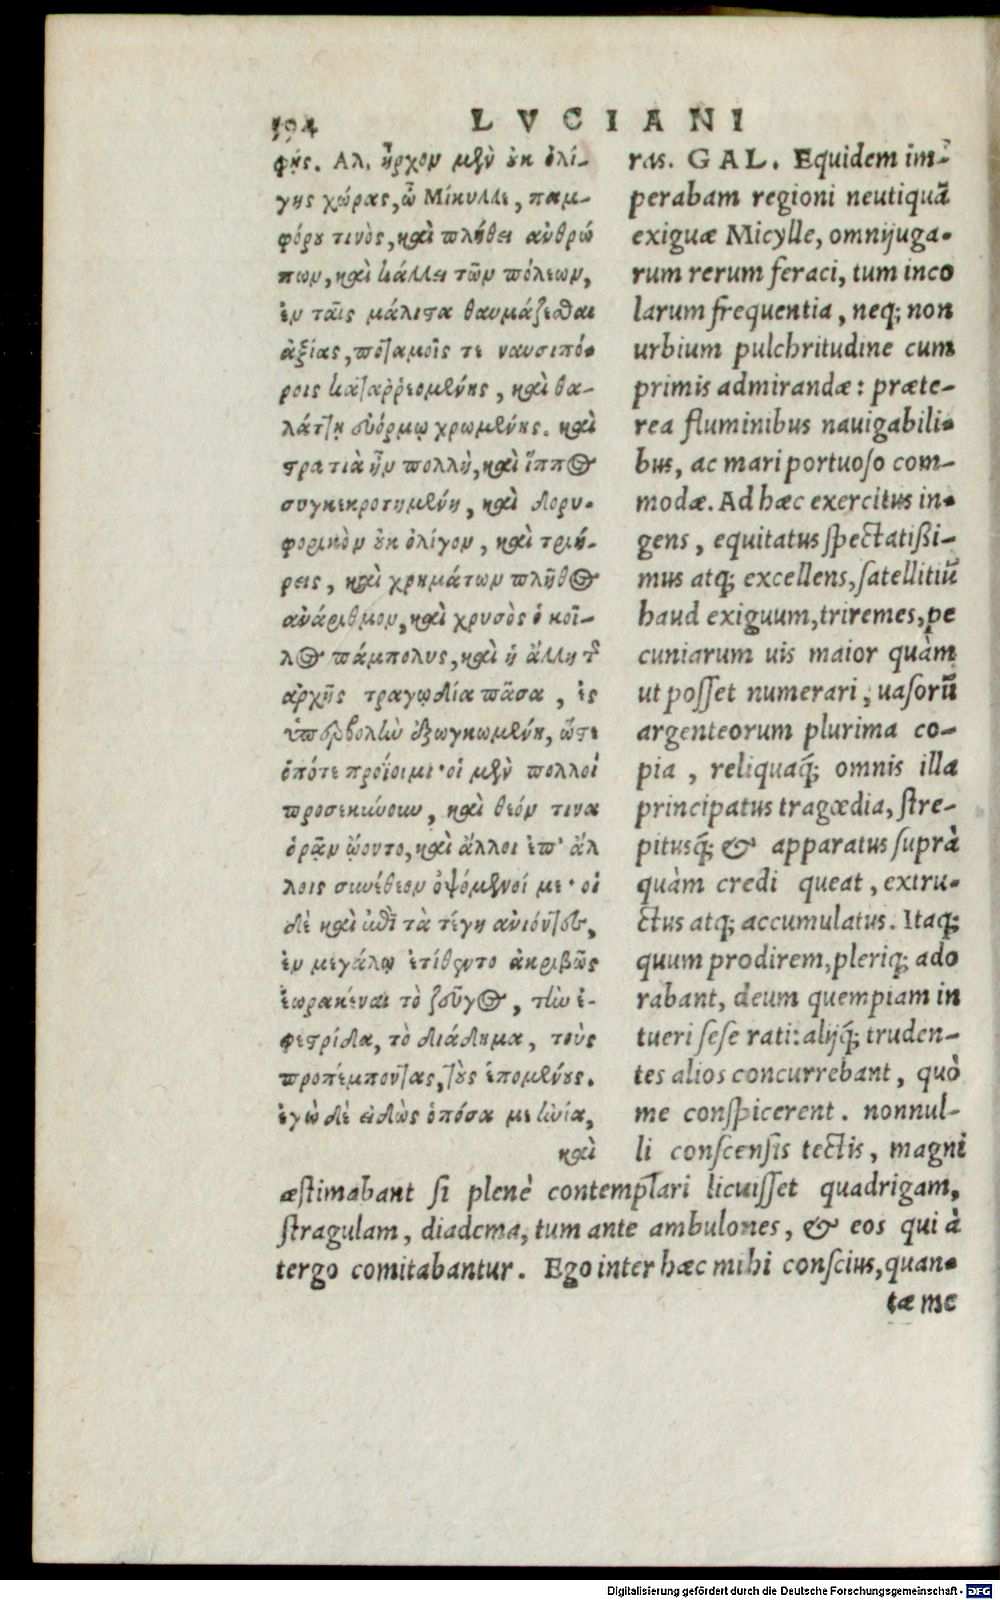 394
LVCIANI
φῄς. Αλ. ἦρχον μὲν ὐκ ὀλί-
γης χώρας, ὦ Μίκυλλε, παμ-
φόρȣ τινὸς, καὶ πλήθει ἀνθρώ
πων, καὶ κάλλει τῶν πόλεων,
ἐν ταῖς μάλιστα θαυμάζεσθαι
ἀξίας, ποταμοῖς τε ναυσιπό-
ροις καταῤῥεομένης, καὶ θα-
λάττῃ εὐόρμῳ χρωμένης. καὶ
στρατιὰ ἦν πολλὴ, καὶ ἵππος
συγκεκροτημένη, καὶ δορυ-
φορικὸν ȣκ ὀλίγον, καὶ τριή-
ρεις, καὶ χρημάτων πλῆθος
ἀνάριθμον, καὶ χρυσὸς ὁ κοῖ-
λος πάμπολυς, καὶ ἡ ἄλλη τῆς
ἀρχῆς τραγῳδία πᾶσα, ἐς
ὑπερβολὴν ἐξωγκωμένη, ὥστε
ὁπότε προΐοιμι· οἱ μὲν πολλοὶ
προσεκύνουν, καὶ θεόν τινα
ὁρᾷν ᾤοντο, καὶ ἄλλοι ἐπ' ἄλ
λοις συνέθεον ὀψόμενοί με· οἱ
δὲ καὶ ἐπὶ τὰ τέγη ἀνιόντες,
ἐν μεγάλῳ ἐτίθεντο ἀκριβῶς
ἑωρακέναι τὸ ζεῦγος, τὴν ἐ-
φεστρίδα, τὸ διάδημα, τοὺς
προπέμποντας, τȣ̀ς ἑπομένȣς.
ἐγὼ δὲ εἰδὼς ὁπόσα με ἠνία,
καὶ
ras. GAL. Equidem im-
perabam regioni neutiquã
exiguæ Micylle, omnijuga-
rum rerum feraci, tum inco
larum frequentia, neq; non
urbium pulchritudine cum
primis admirandæ: præte-
rea fluminibus nauigabili-
bus, ac mari portuoso com-
modæ. Ad hæc exercitus in-
gens, equitatus spectatißi-
mus atq; excellens, satellitiũ
haud exiguum, triremes, pe
cuniarum uis maior quàm
ut posset numerari, uasorũ
argenteorum plurima co-
pia, reliquaq́; omnis illa
principatus tragœdia, stre-
pitusq́; & apparatus suprà
quàm credi queat, extru-
ctus atq; accumulatus. Itaq;
quum prodirem, pleriq; ado
rabant, deum quempiam in
tueri sese rati: alijq́; truden-
tes alios concurrebant, quò
me conspicerent. nonnul-
li conscensis tectis, magni
æstimabant si plenè contemplari licuisset quadrigam,
stragulam, diadema, tum ante ambulones, & eos qui à
tergo comitabantur. Ego inter hæc mihi conscius, quan-
tæ me
Digitalisierung gefördert durch die Deutsche Forschungsgemeinschaft - DFG